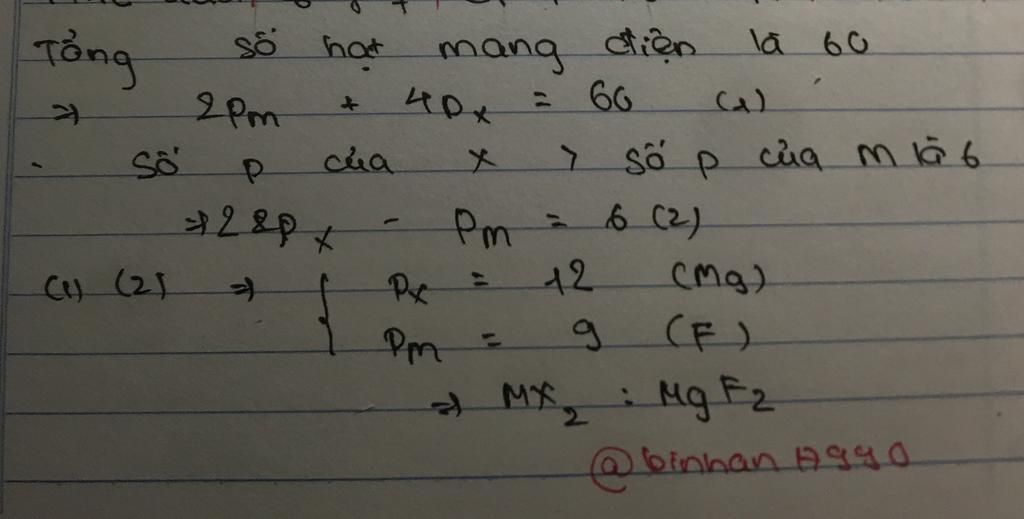 Tổng số hạt mang điện là 60
=> 2Pm + 4Px = 60 (1)
- Số p của x > số p của m là 6
=> 2 2Px - Pm = 6 (2)
(1) (2) => { Px = 12 (Mg)
Pm = 9 (F)
=> MX2 : MgF2
@binhan17990